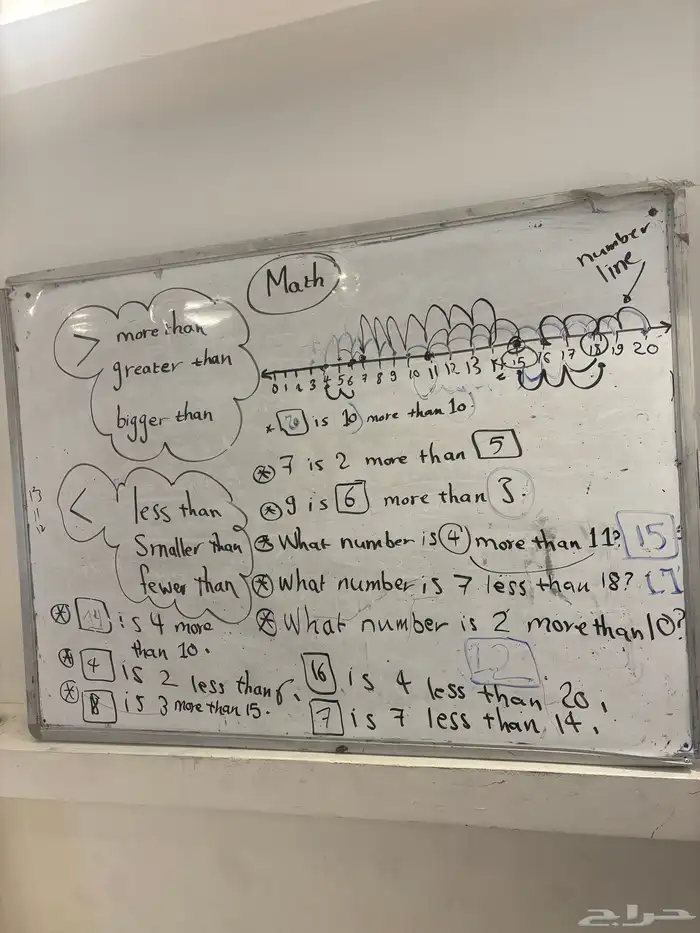 Math
number
line
> more than
greater than
bigger than
0 1 2 3 4 5 6 7 8 9 10 11 12 13 15 16 17 18 19 20
* 20 is 10 more than 10.
* 7 is 2 more than 5
* 9 is 6 more than 3.
< less than
Smaller than
fewer than
13
11
12
* What number is 4 more than 11? 15
* What number is 7 less than 18?
* What number is 2 more than 10?
12
* 14 is 4 more
than 10.
* 4 is 2 less than 6.
* is 3 more than 15.
16 is 4 less than 20,
7 is 7 less than 14,
حراج